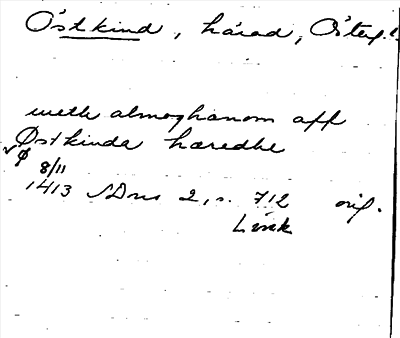 Östkind, härad, Österg.
meth almoghanom aff
Østkinda hæredhe
Ø
8/11
1413 SDns 2, s. 712 orig.
Link